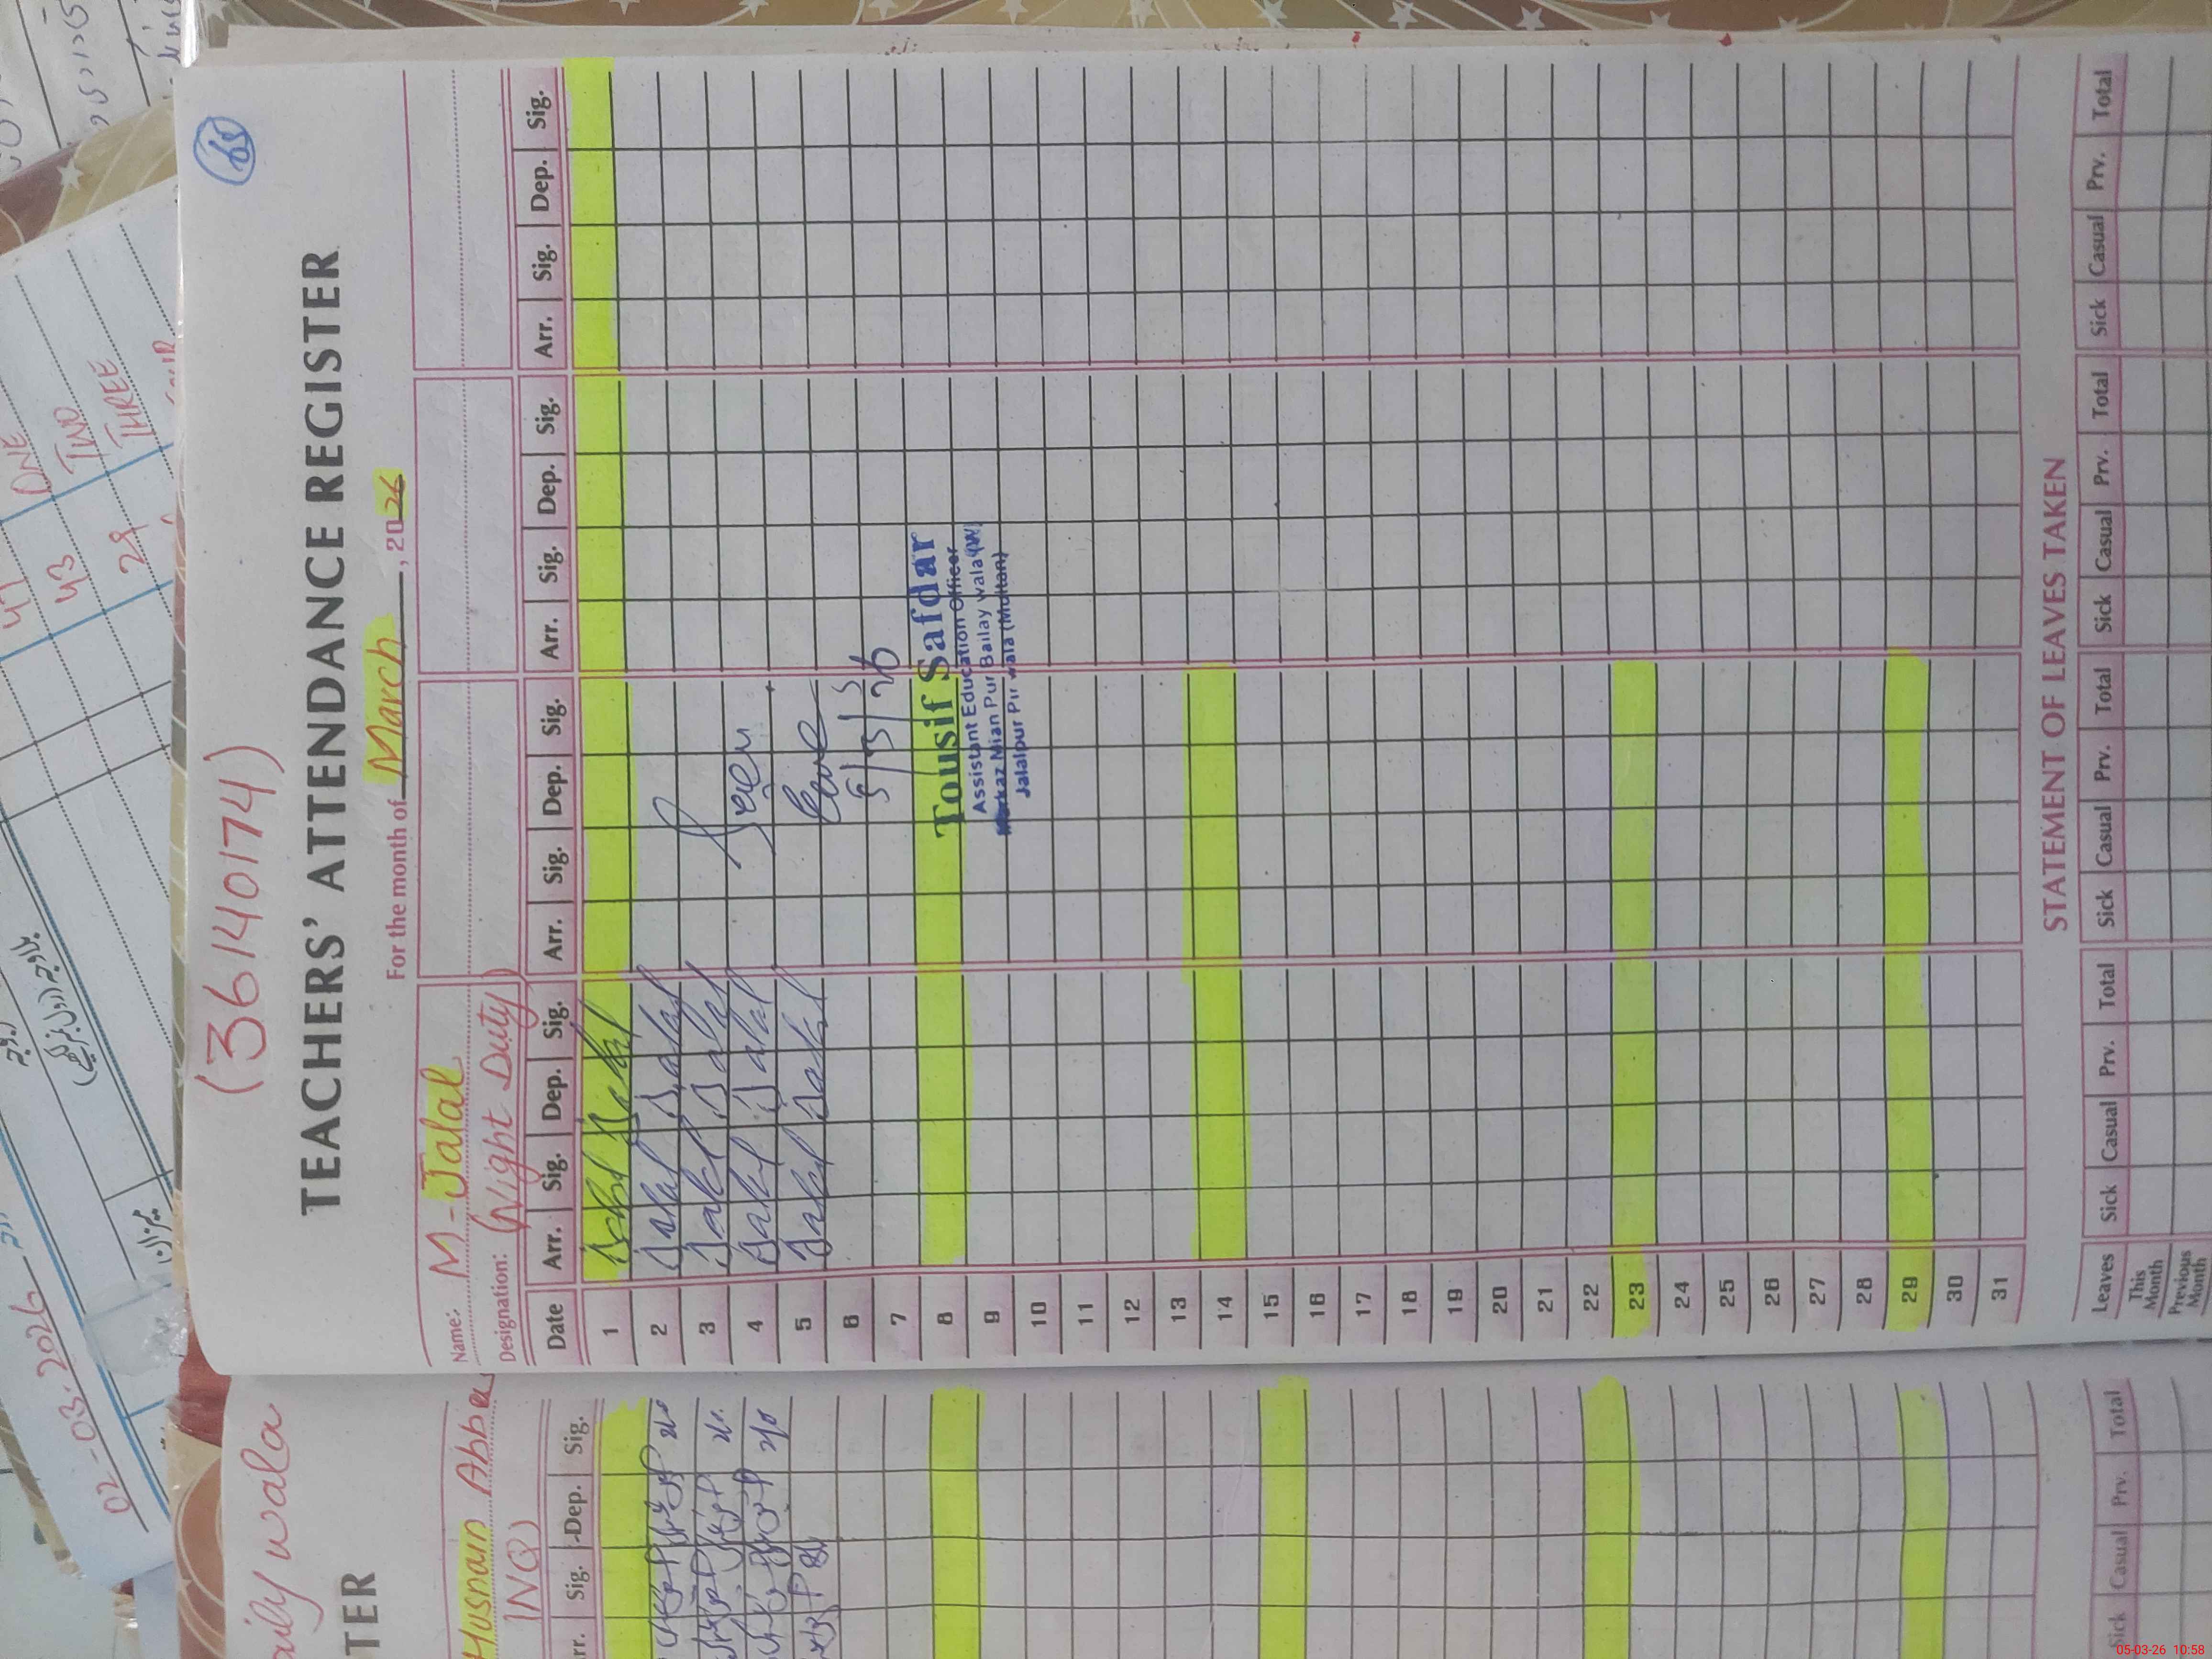 (36140174)
65
TEACHERS' ATTENDANCE REGISTER
For the month of March, 2026
Name: M-Jalal
Designation: (Night Duty)
Date Arr. Sig. Dep. Sig. Arr. Sig. Dep. Sig. Arr. Sig. Dep. Sig. Arr. Sig. Dep. Sig.
1 Jalal Jalal
2 Jalal Jalal
3 Jalal Jalal
4 Jalal Jalal
5 Jalal Jalal
6
7
8
9
10
11
12
13
14
15
16
17
18
19
20
21
22
23
24
25
26
27
28
29
30
31
Seen
5/3/26
Tousif Safdar
Assistant Education Officer
Markaz Mian Pur Bailay wala (W)
Jalalpur Pir wala (Multan)
STATEMENT OF LEAVES TAKEN
Leaves Sick Casual Prv. Total Sick Casual Prv. Total Sick Casual Prv. Total Sick Casual Prv. Total
This Month
Previous Month
wala
TER
Husnain Abba
(NQ)
Sig. Dep. Sig.
Sick Casual Prv. Total
02-03-2026
میزان
47 ONE
43 TWO
29 THREE
05-03-26 10:58